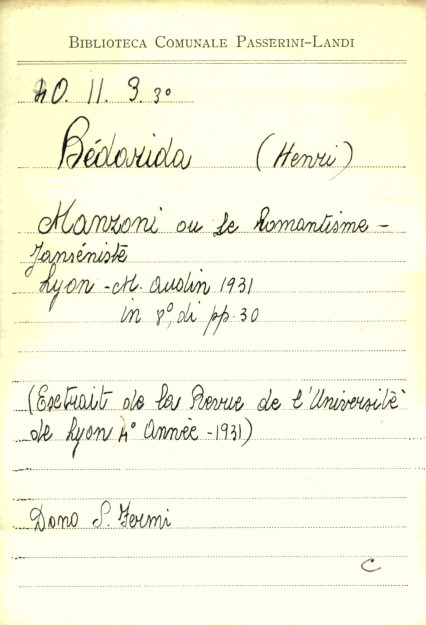 BIBLIOTECA COMUNALE PASSERINI-LANDI
40. 11. 3. 3º
Bédarida (Henri)
Manzoni ou le Romantisme -
Janséniste
Lyon - M. Audin 1931
in 8º, di pp. 30
(Esctrait de la Revue de l'Université
de Lyon 4º Année - 1931)
Dono S. Fermi
C